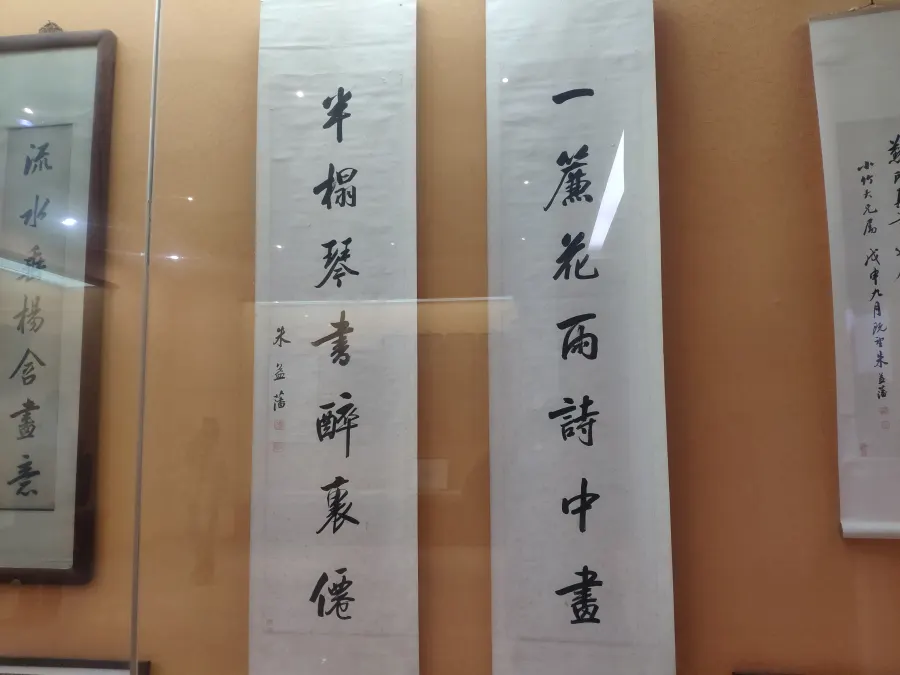 小竹大兄属 戊申九月 朱益藩
一簾花雨詩中畫
半榻琴書醉裏僊
朱益藩
流水垂楊含畫意